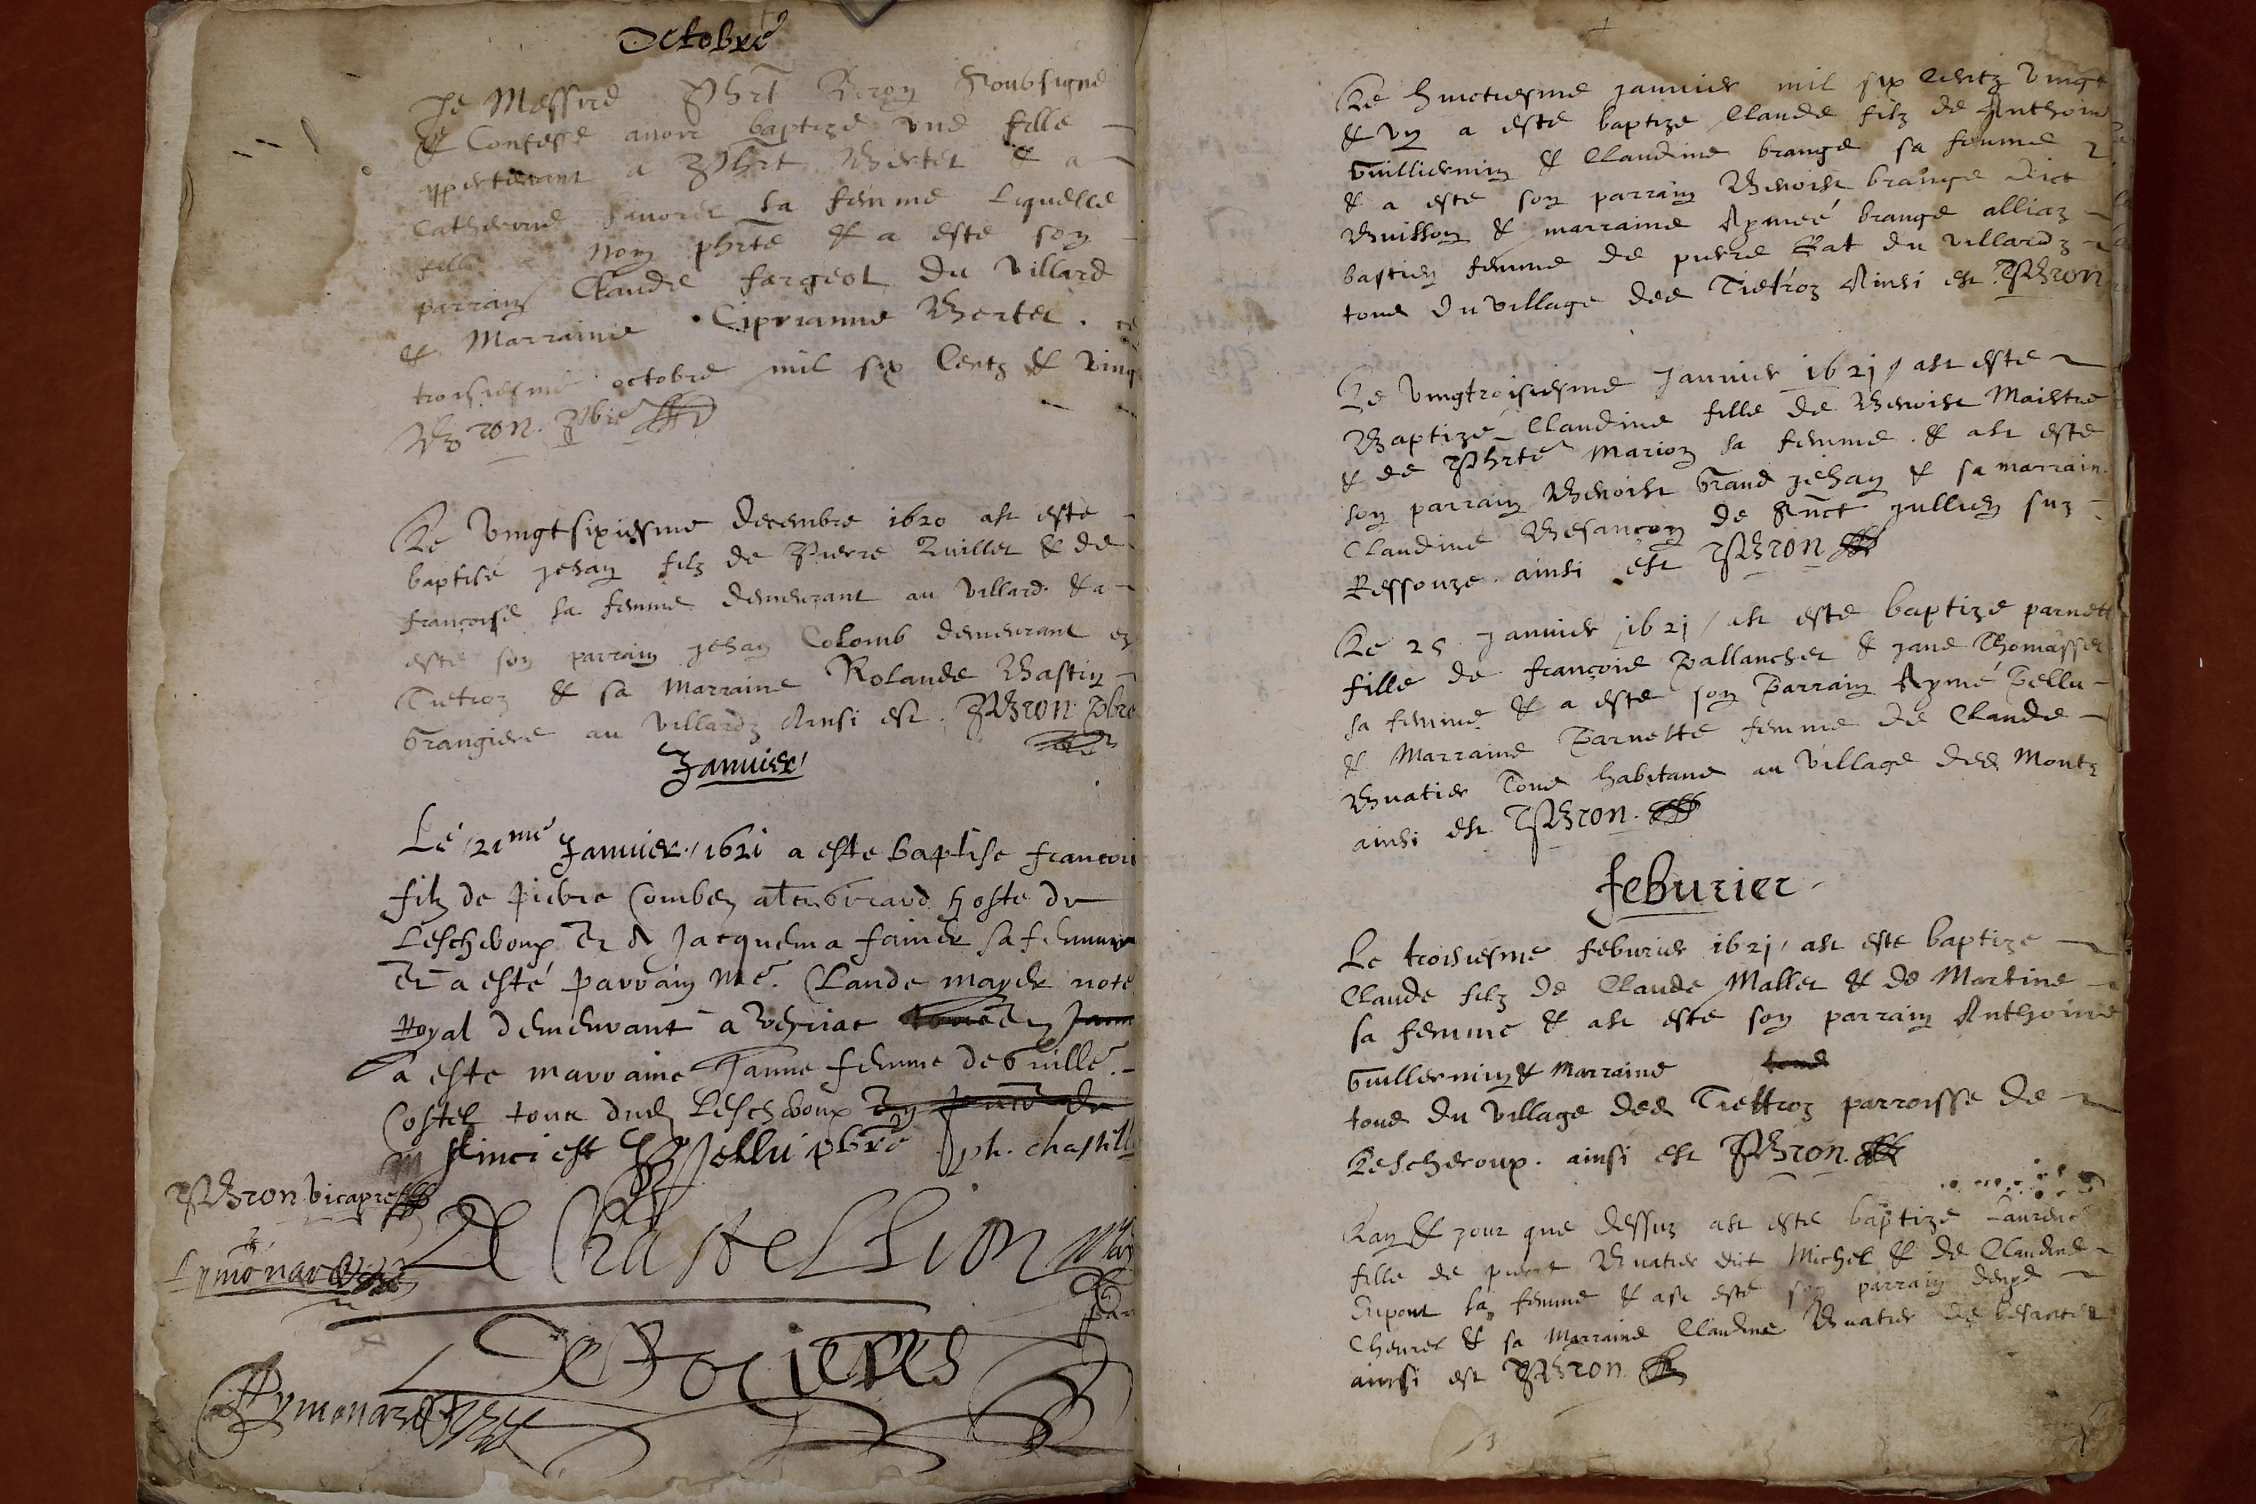 Octobre
Je Messire Phrt Bron Soubsigné
& Confesse avoir baptizé une fille
appertenant a Phrt Bertet & a
Catherine sa femme Laquelle
fille nom phrte & a este son
parrain Claude fargeot du Villard
& Marraine Ciprianne Bertet . ce
troisiesme octobre mil six Centz & Ving
Bron. Pbre
Le Vingtsixiesme decembre 1620 ast este
baptisé jehan filz de Pierre Quillet & de
françoise sa femme demeurant au Villard & a
este son parrain jehan Colomb demeurant es
Tietroz & sa Marraine Rolande Bastin
Grangiere au Villardz Ainsi est. PBron Pbre
Januier
Le 21me Januier 1621 a este baptise francoi
filz de pierre Comben Girard hoste de
Lescheroux Et d Jacquema fainer sa femme
Et a esté parrain Me. Claude mayer note
Royal demeurant a Veriat
a este marraine Janne femme de Guille.
Costel tous dud Lescheroux
Ainci est Jellu pbre ph. Chastill
PBron vicapre
Lymonard
De Chastellion
De Rogieres
Aymonard
Le huictiesme januier mil six Centz Vingt
& Un a este baptize Claude filz de Anthoine
Guilliermin & Claudine brange sa femme
& a este son parrain Benoist brange dict
Buisson & marraine Aymeé brange alliaz
bastien femme de pierre Gat du villardz
tous du village des Tietroz Ainsi est. PBron
Le Vingtroisiesme Januier 1621 ast este
Baptizé Claudine fille de Benoist Maistre
& de Phrte Marion sa femme . & ast este
son parrain Benoist Grand jehan & sa marrain.
Claudine Besançon de Sainct jullien suz
Ressouze . ainsi est PBron
Le 25 Januier 1621 ast este baptize parnett
fille de françois Pallanchet & jane Thomasset
sa femme & a este son Parrain Aymé Pellu
& Marraine Parnette femme de Claude
Buatier Tous habitans au Village des Montz
ainsi est PBron.
feburier
Le troisiesme feburier 1621 ast este baptize
Claude filz de Claude Mallet & de Martine
sa femme & ast este son parrain Anthoine
Guillermin & Marraine tous
tous du Village des Tiettroz parroisse de
Lescheroux . ainsi est PBron.
L'an & jour que dessuz ast este baptize Laurence
fille de pierre Buatier dict Michel & de Claudine
Dupont sa femme & ast este son parrain denys
Cheuret & sa Marraine Claudine Buatier
ainsi est PBron